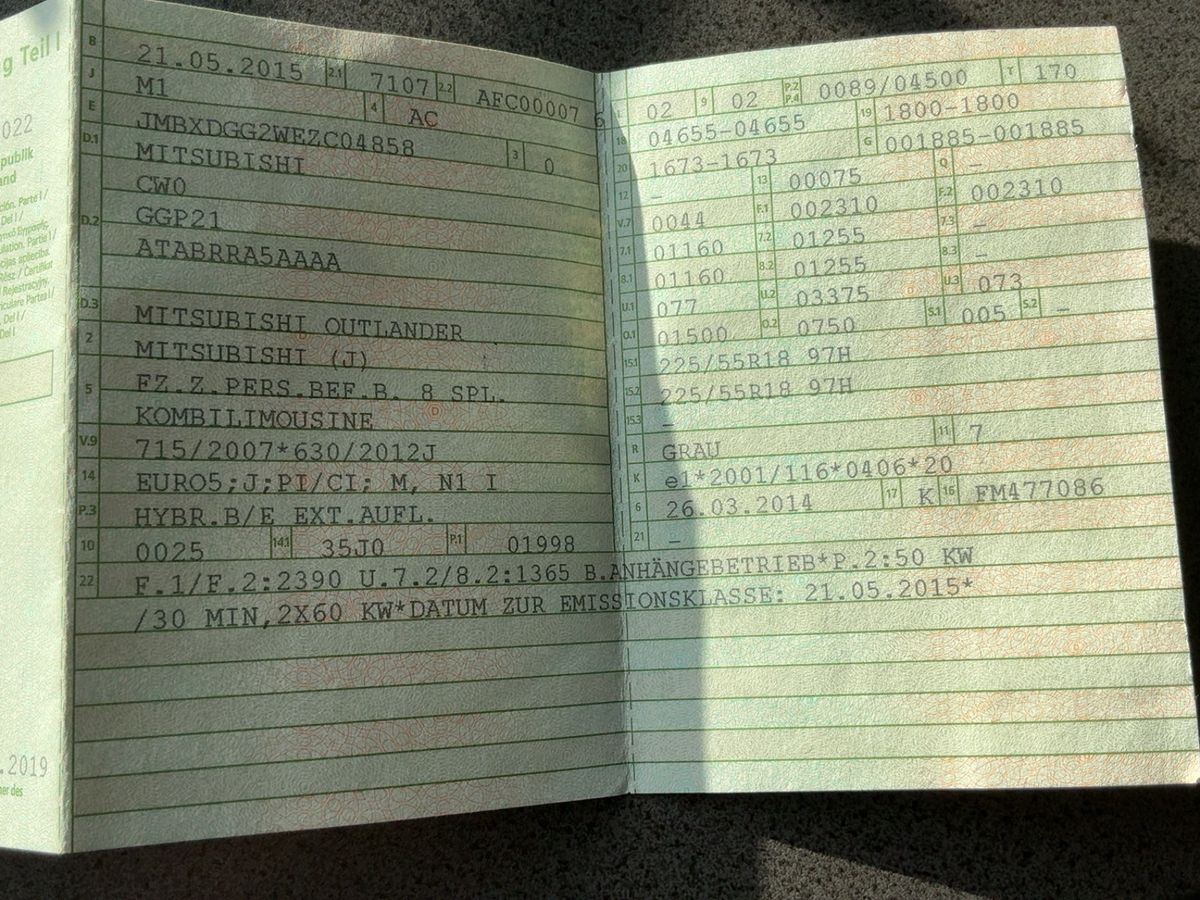 g Teil I
022
publik
and
ción. Parte I /
Del I /
ulation. Partie I /
Rejestracyjny.
culare Partea I /
Del I
.2019
ner des
B 21.05.2015 2.1 7107 2.2 AFC00007 6
J M1 4 AC
E JMBXDGG2WEZC04858 3 0
D.1 MITSUBISHI
CW0
D.2 GGP21
ATABRRA5AAAA
D.3 MITSUBISHI OUTLANDER
2 MITSUBISHI (J)
5 FZ.Z.PERS.BEF.B. 8 SPL.
KOMBILIMOUSINE
V.9 715/2007*630/2012J
14 EURO5;J;PI/CI; M, N1 I
P.3 HYBR.B/E EXT.AUFL.
10 0025 14.1 35J0 P.1 01998
22 F.1/F.2:2390 U.7.2/8.2:1365 B.ANHÄNGEBETRIEB*P.2:50 KW
/30 MIN,2X60 KW*DATUM ZUR EMISSIONSKLASSE: 21.05.2015*
02 9 02 P.2 P.4 0089/04500 T 170
18 04655-04655 19 1800-1800
20 1673-1673 G 001885-001885
12 – 13 00075 Q –
V.7 0044 F.1 002310 F.2 002310
7.1 01160 7.2 01255 7.3 –
8.1 01160 8.2 01255 8.3 –
U.1 077 U.2 03375 U.3 073
O.1 01500 O.2 0750 S.1 005 S.2 –
15.1 225/55R18 97H
15.2 225/55R18 97H
15.3 –
R GRAU 11 7
K e1*2001/116*0406*20
6 26.03.2014 17 K 16 FM477086
21 –